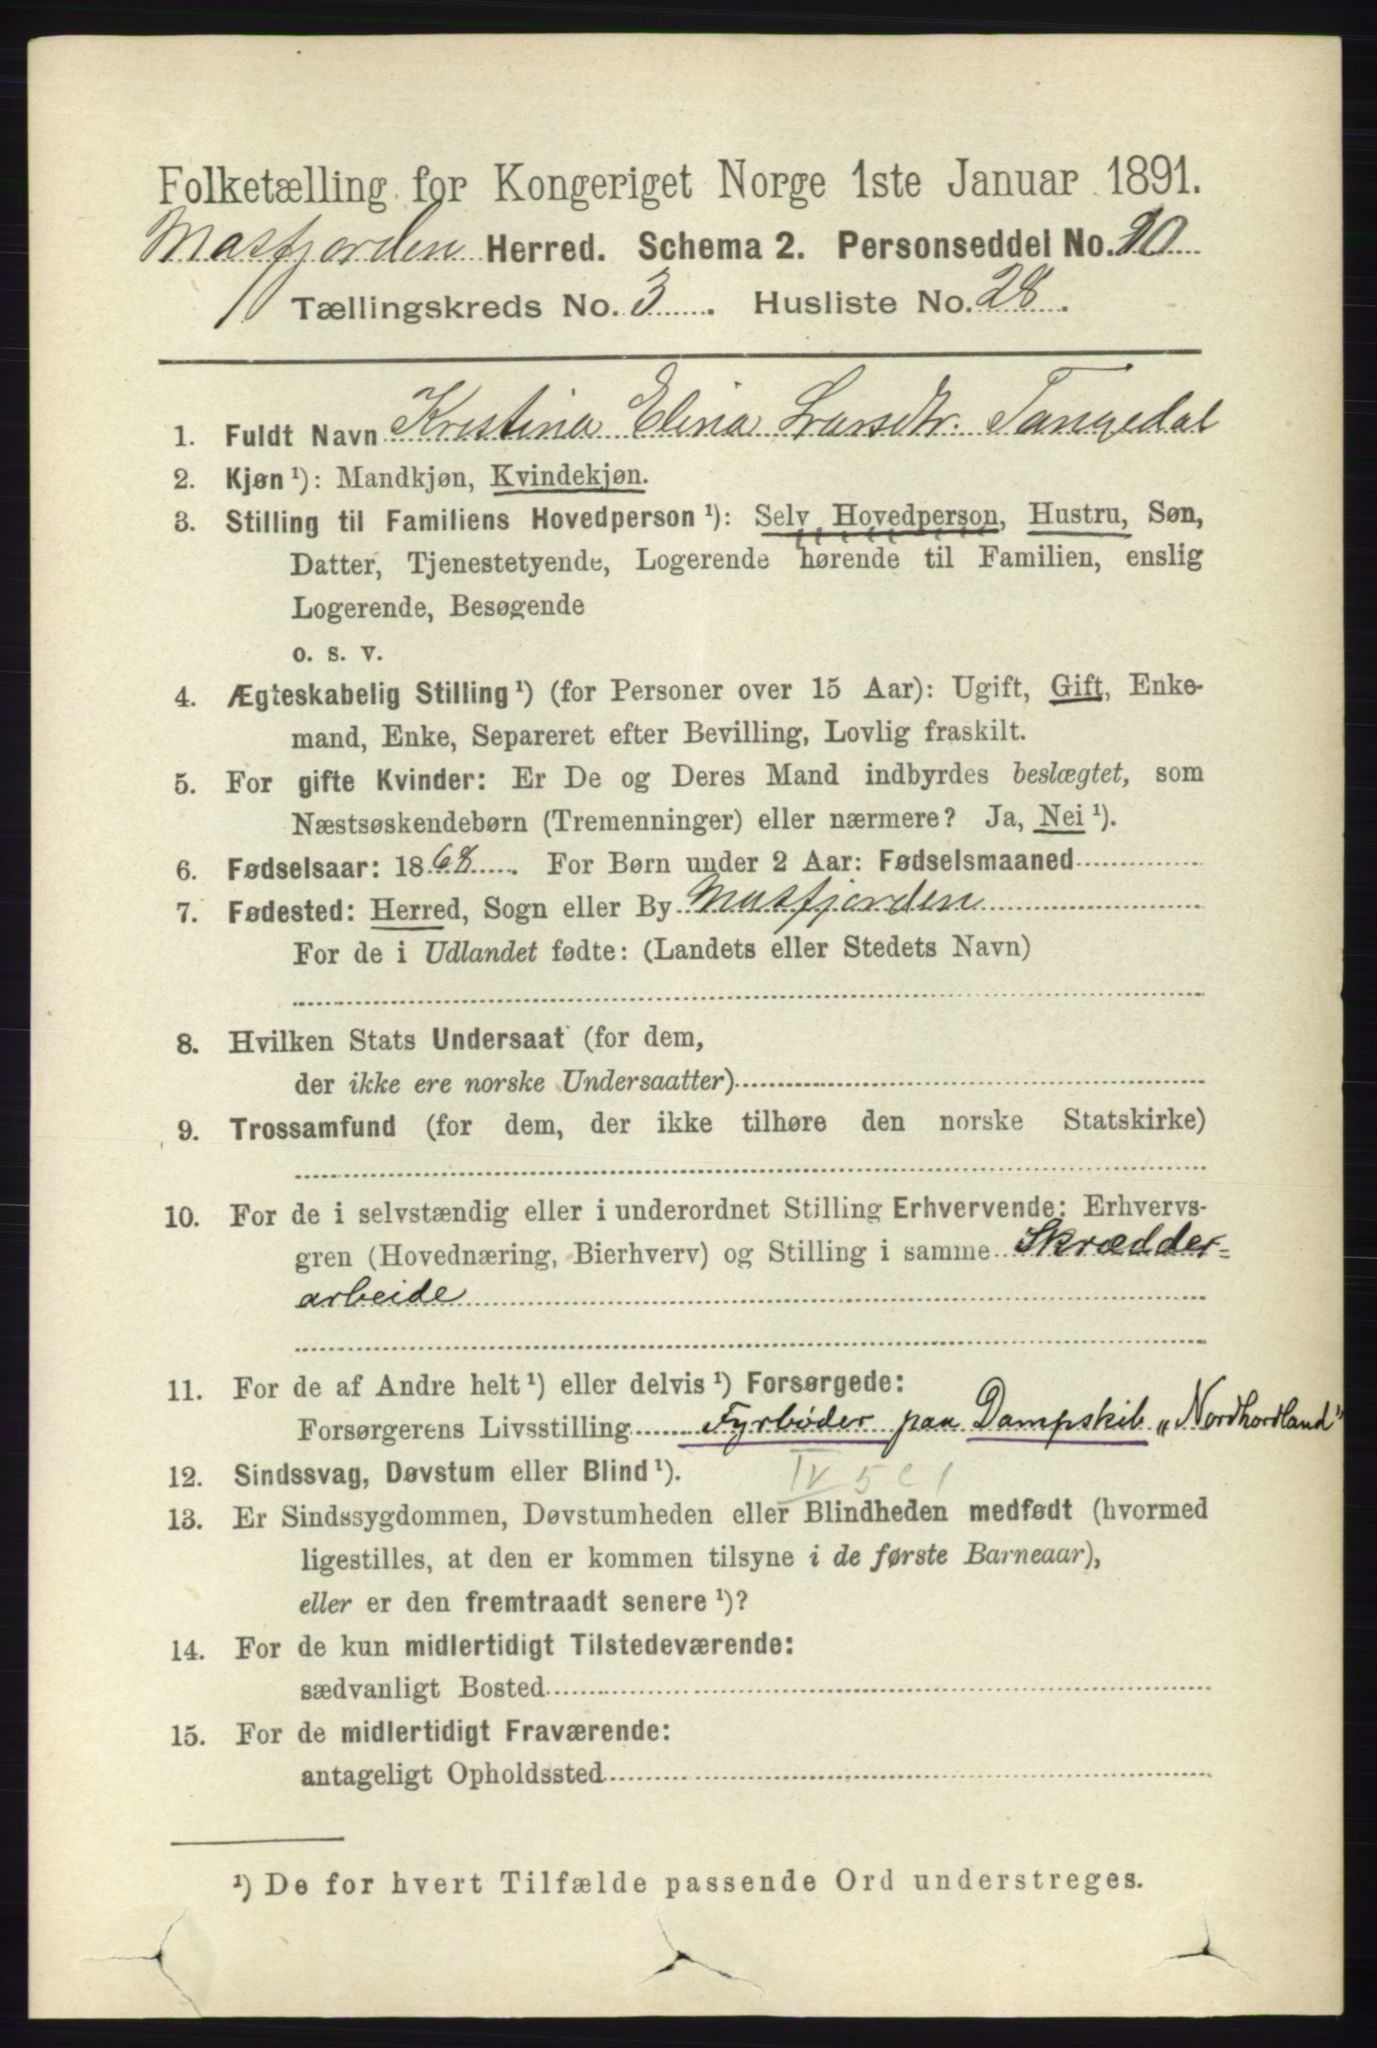 Folketælling for Kongeriget Norge 1ste Januar 1891.
Masfjorden Herred. Schema 2. Personseddel No. 20
Tællingskreds No. 3. Husliste No. 28.
1. Fuldt Navn Kristina Elina Larsdtr. Tangedal
2. Kjøn ¹): Mandkjøn, Kvindekjøn.
3. Stilling til Familiens Hovedperson ¹): Selv Hovedperson, Hustru, Søn,
Datter, Tjenestetyende, Logerende hørende til Familien, enslig
Logerende, Besøgende
o. s. v.
4. Ægteskabelig Stilling ¹) (for Personer over 15 Aar): Ugift, Gift, Enke-
mand, Enke, Separeret efter Bevilling, Lovlig fraskilt.
5. For gifte Kvinder: Er De og Deres Mand indbyrdes beslægtet, som
Næstsøskendebørn (Tremenninger) eller nærmere? Ja, Nei ¹).
6. Fødselsaar: 1868. For Børn under 2 Aar: Fødselsmaaned
7. Fødested: Herred, Sogn eller By Masfjorden
For de i Udlandet fødte: (Landets eller Stedets Navn)
8. Hvilken Stats Undersaat (for dem,
der ikke ere norske Undersaatter)
9. Trossamfund (for dem, der ikke tilhøre den norske Statskirke)
10. For de i selvstændig eller i underordnet Stilling Erhvervende: Erhvervs-
gren (Hovednæring, Bierhverv) og Stilling i samme Skrædder-
arbeide
11. For de af Andre helt ¹) eller delvis ¹) Forsørgede:
Forsørgerens Livsstilling Fyrbøder paa Dampskib „Nordhordland"
12. Sindssvag, Døvstum eller Blind ¹). IV 5 c 1
13. Er Sindssygdommen, Døvstumheden eller Blindheden medfødt (hvormed
ligestilles, at den er kommen tilsyne i de første Barneaar),
eller er den fremtraadt senere ¹)?
14. For de kun midlertidigt Tilstedeværende:
sædvanligt Bosted
15. For de midlertidigt Fraværende:
antageligt Opholdssted
¹) De for hvert Tilfælde passende Ord understreges.